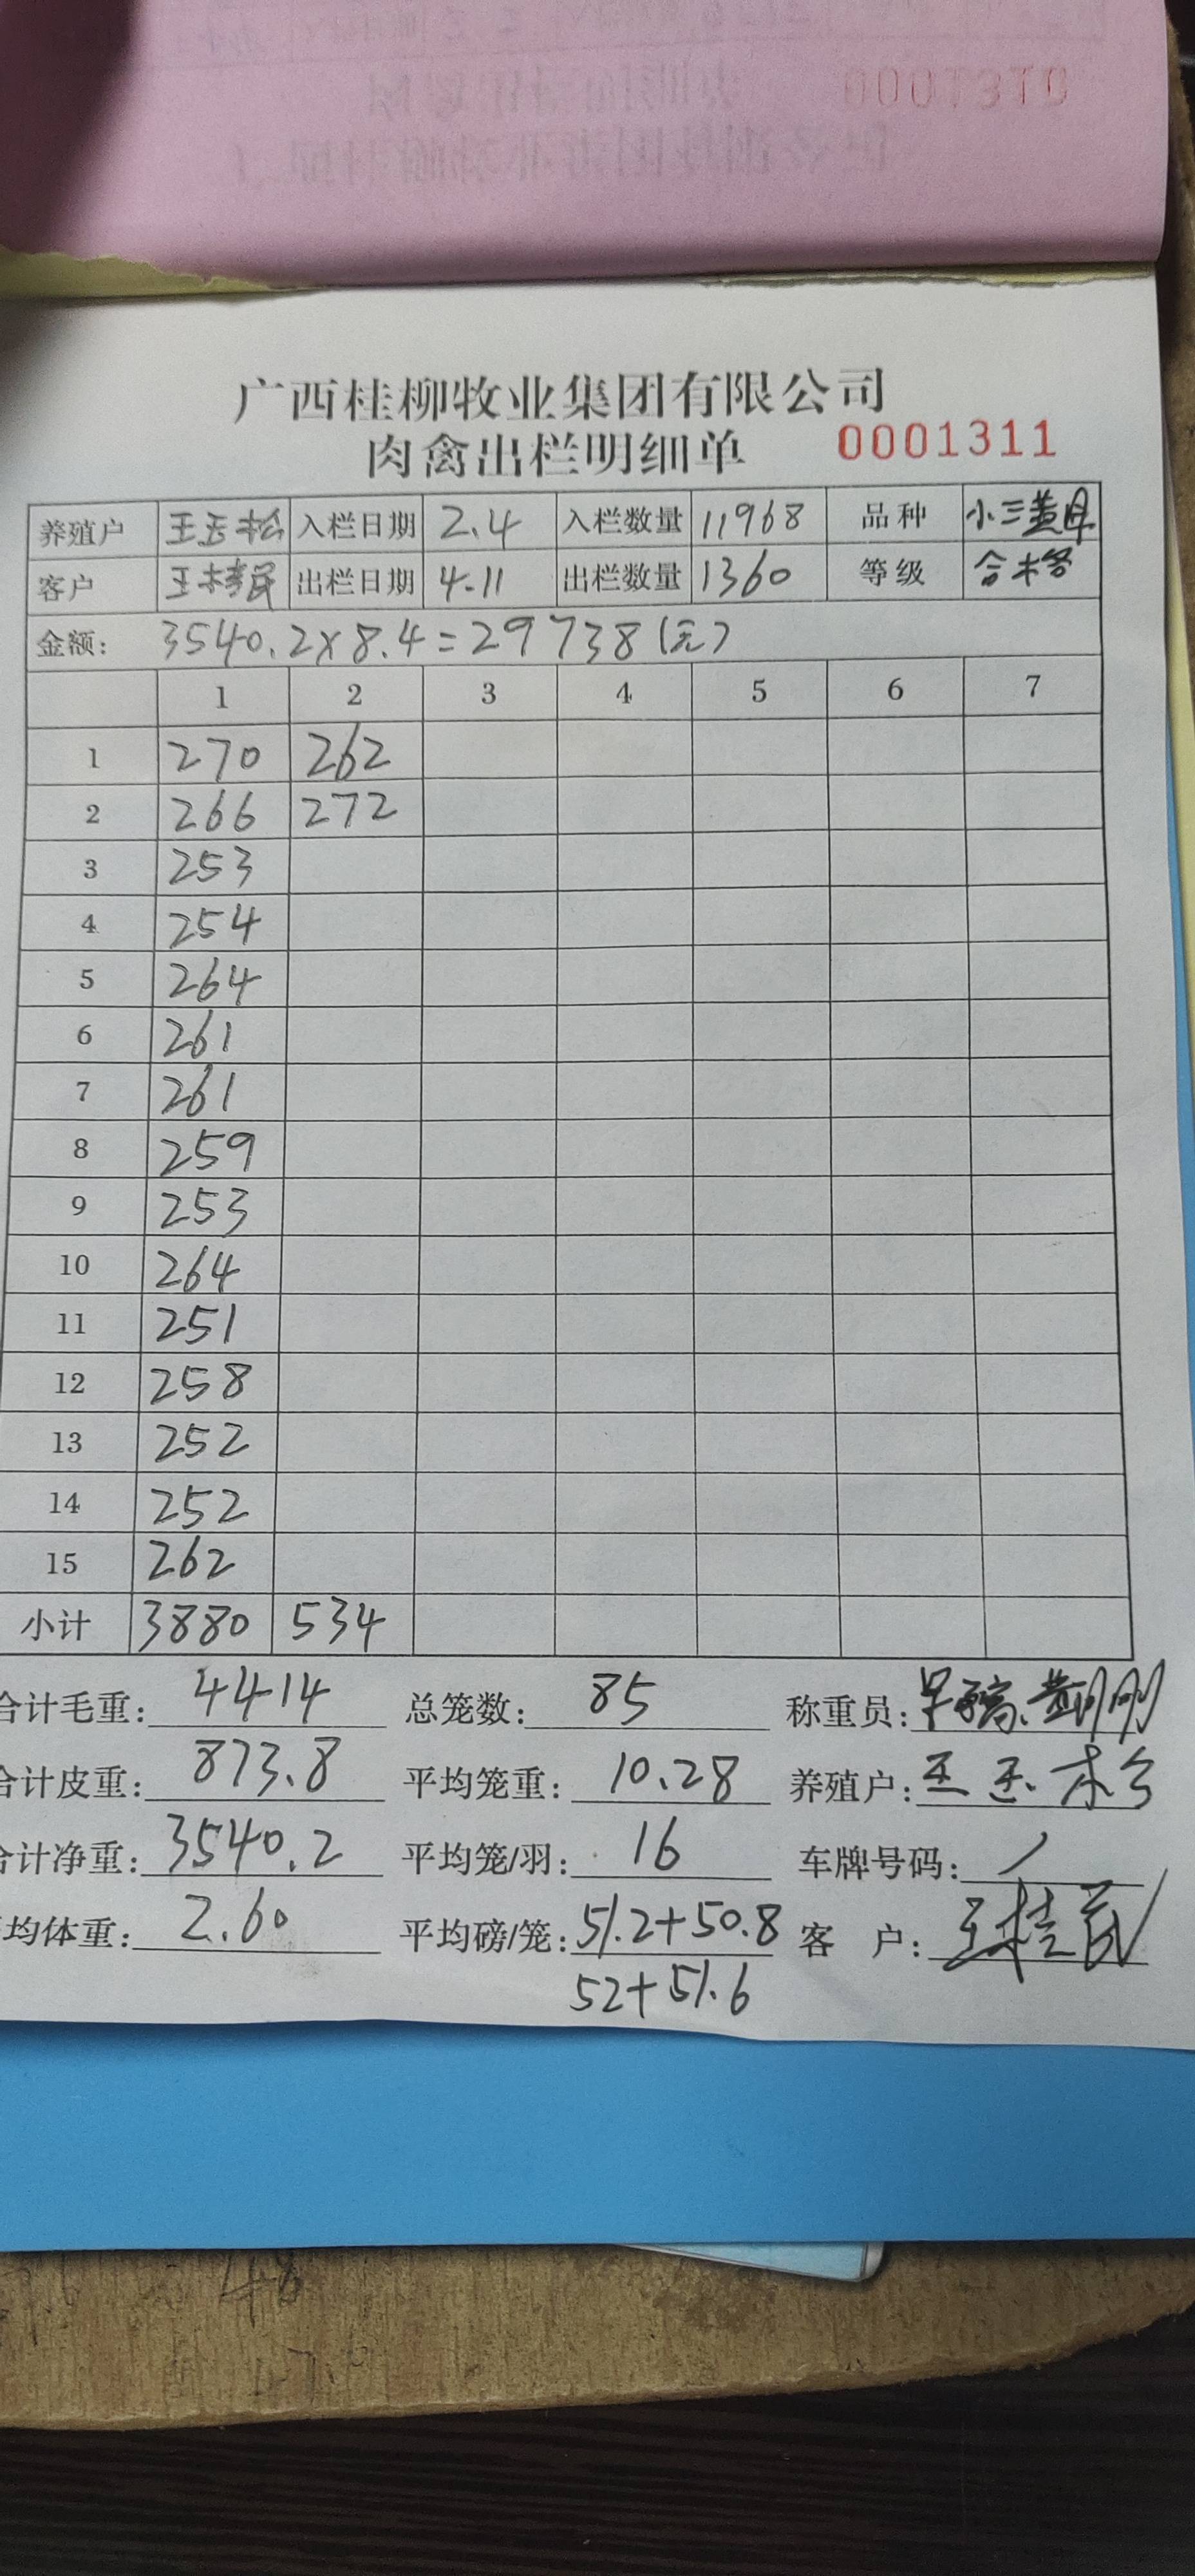 0001310
广西桂柳牧业集团有限公司
肉禽出栏明细单 0001311
养殖户 王玉松 入栏日期 2.4 入栏数量 11968 品种 小三黄母
客户 王桂民 出栏日期 4.11 出栏数量 1360 等级 合格
金额: 3540.2×8.4=29738(元)
1 2 3 4 5 6 7
1 270 262
2 266 272
3 253
4 254
5 264
6 261
7 261
8 259
9 253
10 264
11 251
12 258
13 252
14 252
15 262
小计 3880 534
合计毛重: 4414 总笼数: 85 称重员:
合计皮重: 873.8 平均笼重: 10.28 养殖户: 王玉松
合计净重: 3540.2 平均笼/羽: 16 车牌号码: /
均体重: 2.60 平均磅/笼: 51.2+50.8 客 户: 王桂民
52+51.6
48